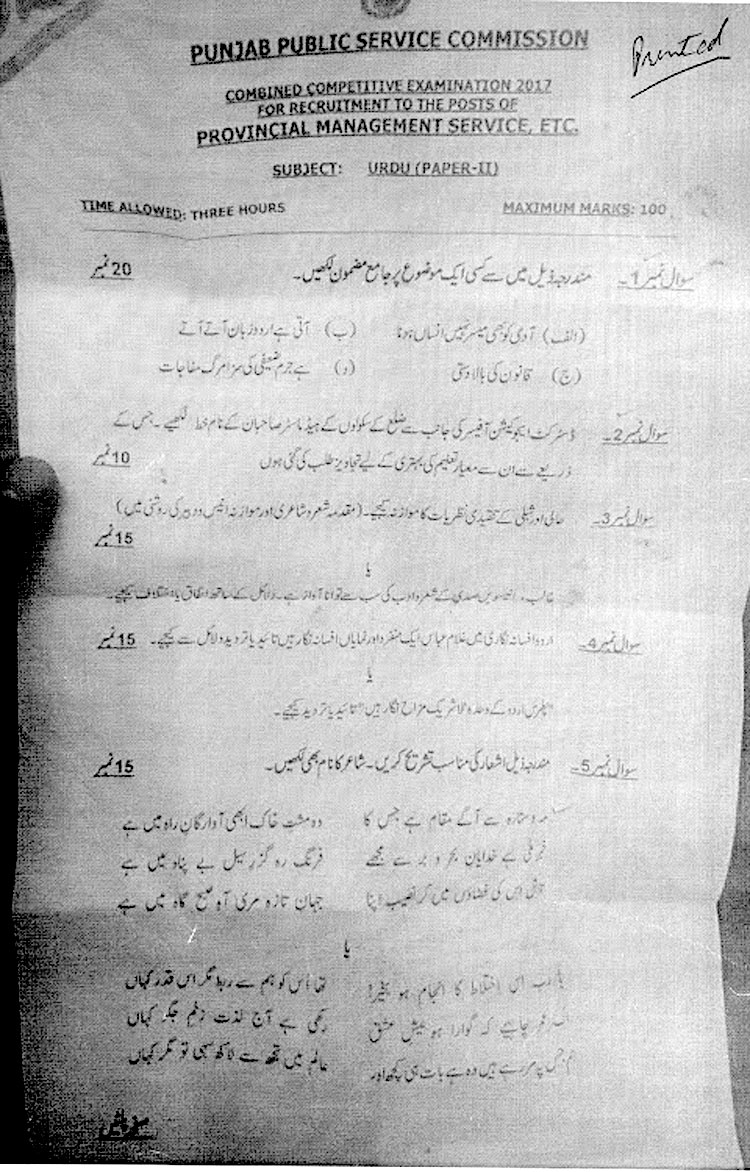 PUNJAB PUBLIC SERVICE COMMISSION
Printed
COMBINED COMPETITIVE EXAMINATION 2017
FOR RECRUITMENT TO THE POSTS OF
PROVINCIAL MANAGEMENT SERVICE, ETC.
SUBJECT: URDU (PAPER-II)
TIME ALLOWED: THREE HOURS MAXIMUM MARKS: 100
سوال نمبر 1۔ مندرجہ ذیل میں سے کسی ایک موضوع پر جامع مضمون لکھیں۔ 20 نمبر
(الف) آدمی کو بھی میسر نہیں انساں ہونا (ب) آتی ہے اردو زبان آتے آتے
(ج) قانون کی بالادستی (د) ہے جرم ضعیفی کی سزا مرگ مفاجات
سوال نمبر 2۔ ڈسٹرکٹ ایجوکیشن آفیسر کی جانب سے ضلع کے سکولوں کے ہیڈ ماسٹر صاحبان کے نام خط لکھیے۔ جس کے
ذریعے سے ان سے معیار تعلیم کی بہتری کے لیے تجاویز طلب کی گئی ہوں 10 نمبر
سوال نمبر 3۔ حالی اور شبلی کے تنقیدی نظریات کا موازنہ کیجیے۔ (مقدمہ شعر و شاعری اور موازنہ انیس و دبیر کی روشنی میں)
15 نمبر
یا
غالب انیسویں صدی کے شعر و ادب کی سب سے توانا آواز ہے۔ دلائل کے ساتھ اتفاق یا اختلاف کیجیے۔
سوال نمبر 4۔ اردو افسانہ نگاری میں غلام عباس ایک منفرد اور نمایاں افسانہ نگار ہیں تائید یا تردید دلائل سے کیجیے۔ 15 نمبر
یا
"پطرس اردو کے وحدہ لاشریک مزاح نگار ہیں" تائید یا تردید کیجیے۔
سوال نمبر 5۔ مندرجہ ذیل اشعار کی مناسب تشریح کریں۔ شاعر کا نام بھی لکھیں۔ 15 نمبر
مہ و ستارہ سے آگے مقام ہے جس کا وہ مشت خاک ابھی آوارگان راہ میں ہے
خبر ملی ہے خدایان بحر و بر سے مجھے فرنگ رہ گزر سیل بے پناہ میں ہے
تلاش اس کی فضاؤں میں کر نصیب اپنا جہان تازہ مری آہ صبح گاہ میں ہے
یا
یا رب اس اختلاط کا انجام ہو بخیر! تھا اس کو ہم سے ربط مگر اس قدر کہاں
اک عمر چاہیے کہ گوارا ہو نیش عشق رکھی ہے آج لذت زخم جگر کہاں
ہم جس پہ مر رہے ہیں وہ ہے بات ہی کچھ اور عالم میں تجھ سے لاکھ سہی تو مگر کہاں